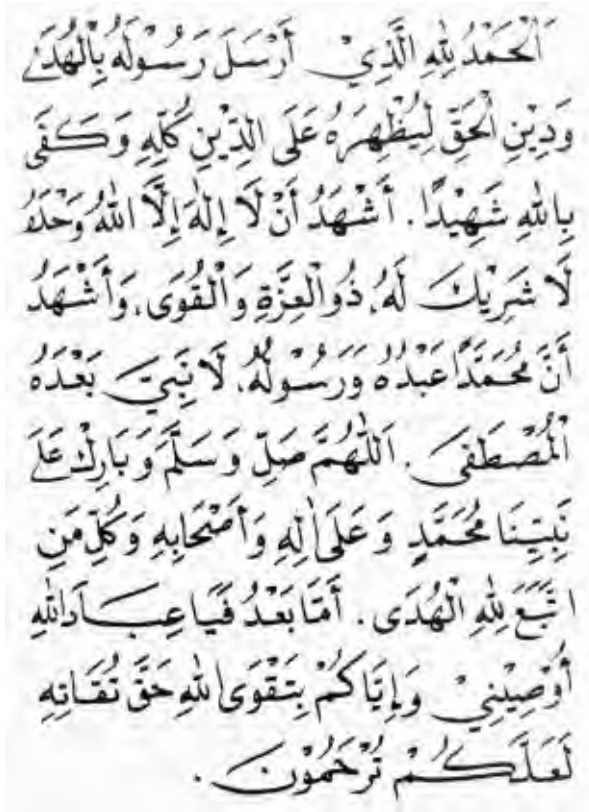 اَلْحَمْدُ لِلّٰهِ الَّذِيْ أَرْسَلَ رَسُوْلَهُ بِالْهُدَى
وَدِيْنِ الْحَقِّ لِيُظْهِرَهُ عَلَى الدِّيْنِ كُلِّهِ وَكَفَى
بِاللهِ شَهِيْدًا. أَشْهَدُ أَنْ لَا إِلٰهَ إِلَّا اللهُ وَحْدَهُ
لَا شَرِيْكَ لَهُ، ذُو الْعِزَّةِ وَالْقُوَى، وَأَشْهَدُ
أَنَّ مُحَمَّدًا عَبْدُهُ وَرَسُوْلُهُ، لَا نَبِيَّ بَعْدَهُ
الْمُصْطَفَى. اَللّٰهُمَّ صَلِّ وَسَلِّمْ وَبَارِكْ عَلَى
نَبِيِّنَا مُحَمَّدٍ وَعَلَى اٰلِهِ وَأَصْحَابِهِ وَكُلِّ مَنِ
اتَّبَعَ لِلّٰهِ الْهُدَى. أَمَّا بَعْدُ فَيَا عِبَادَ اللهِ
أُوْصِيْنِيْ وَإِيَّاكُمْ بِتَقْوَى اللهِ حَقَّ تُقَاتِهِ
لَعَلَّكُمْ تُرْحَمُوْنَ.